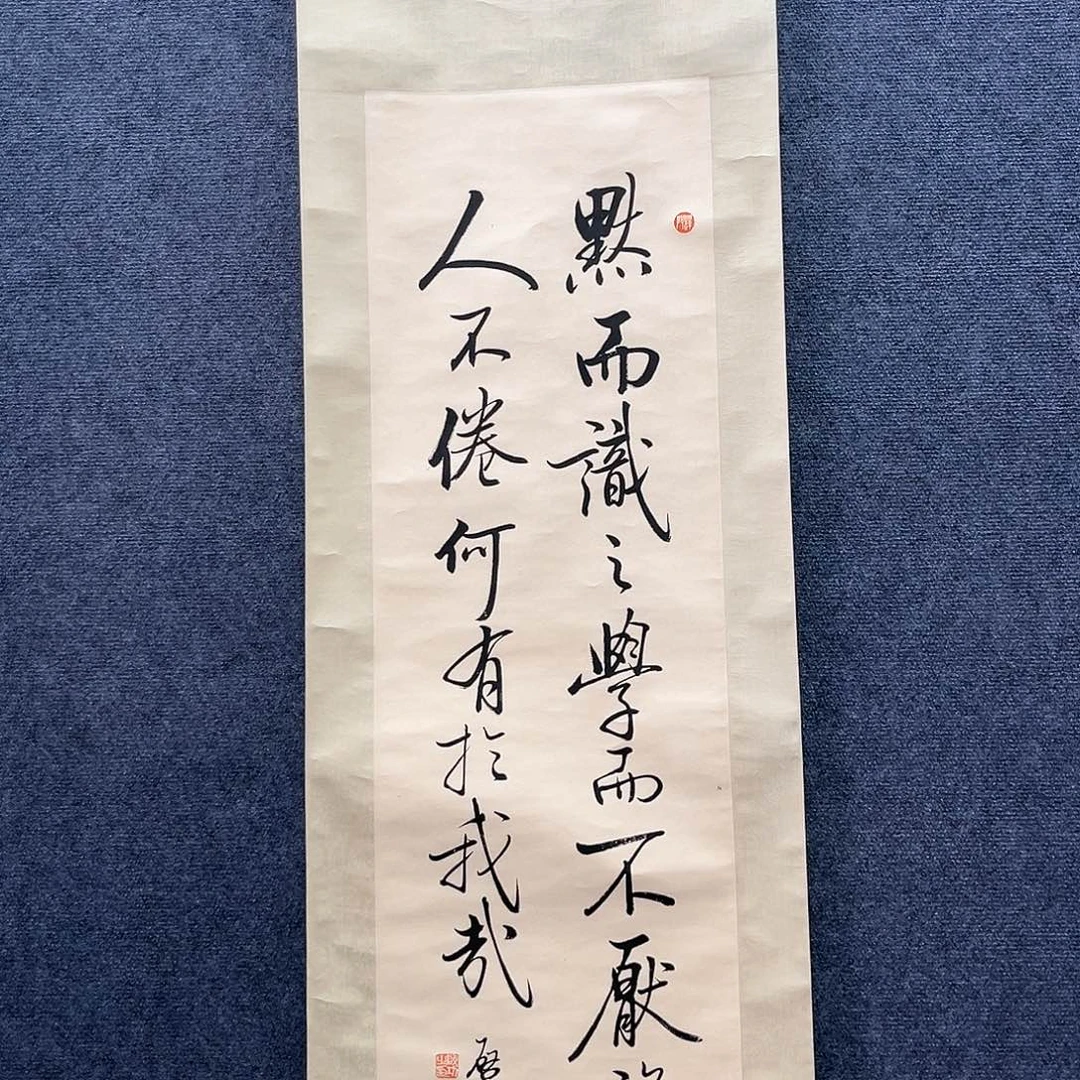 默而識之學而不厭
人不倦何有於我哉
啓